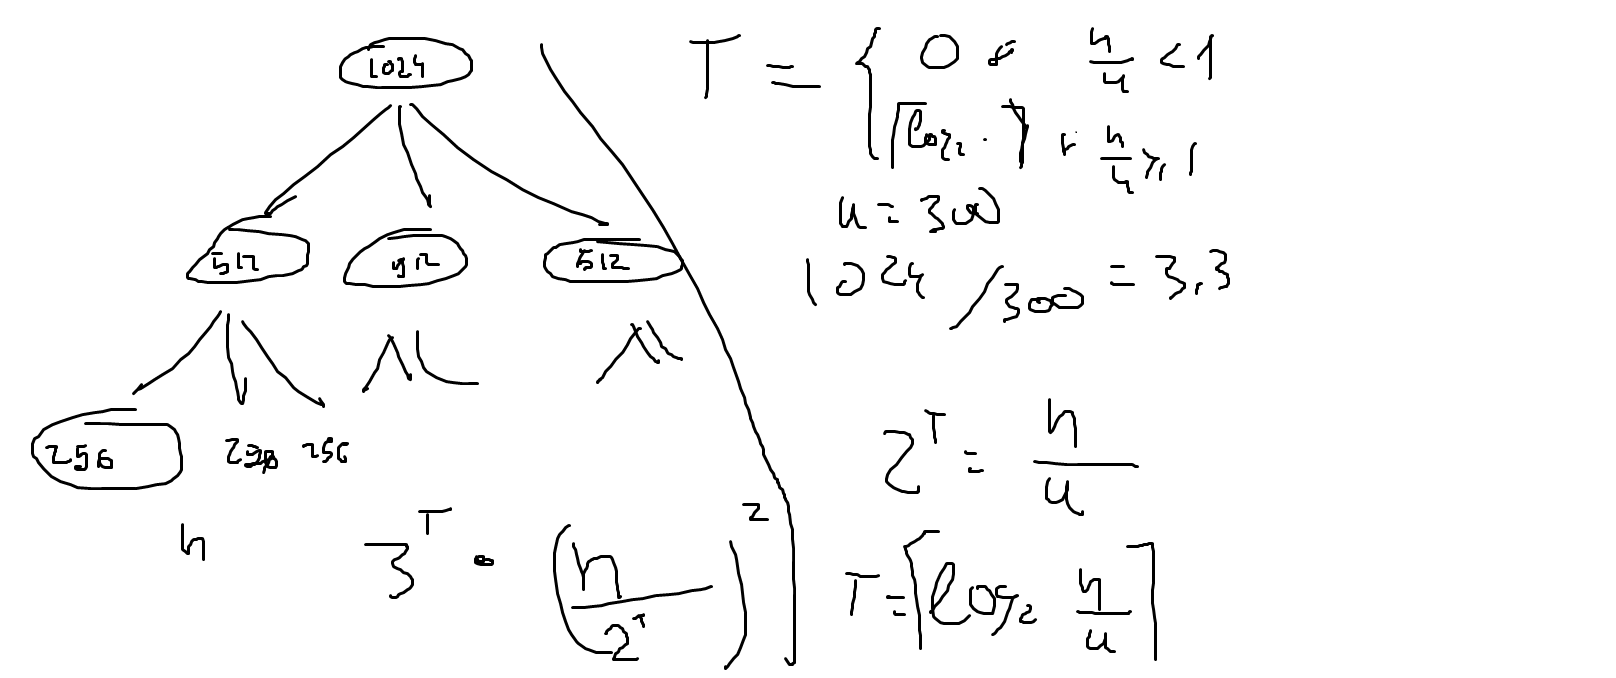 1024
512 512 512
256 256 256
n 3^T · (n / 2^T)^2
T = { 0 n/u < 1
⌈log₂ · ⌉ n/u ⩾ 1
u = 300
1024 / 300 = 3,3
2^T = n / u
T = ⌈log₂ n/u⌉